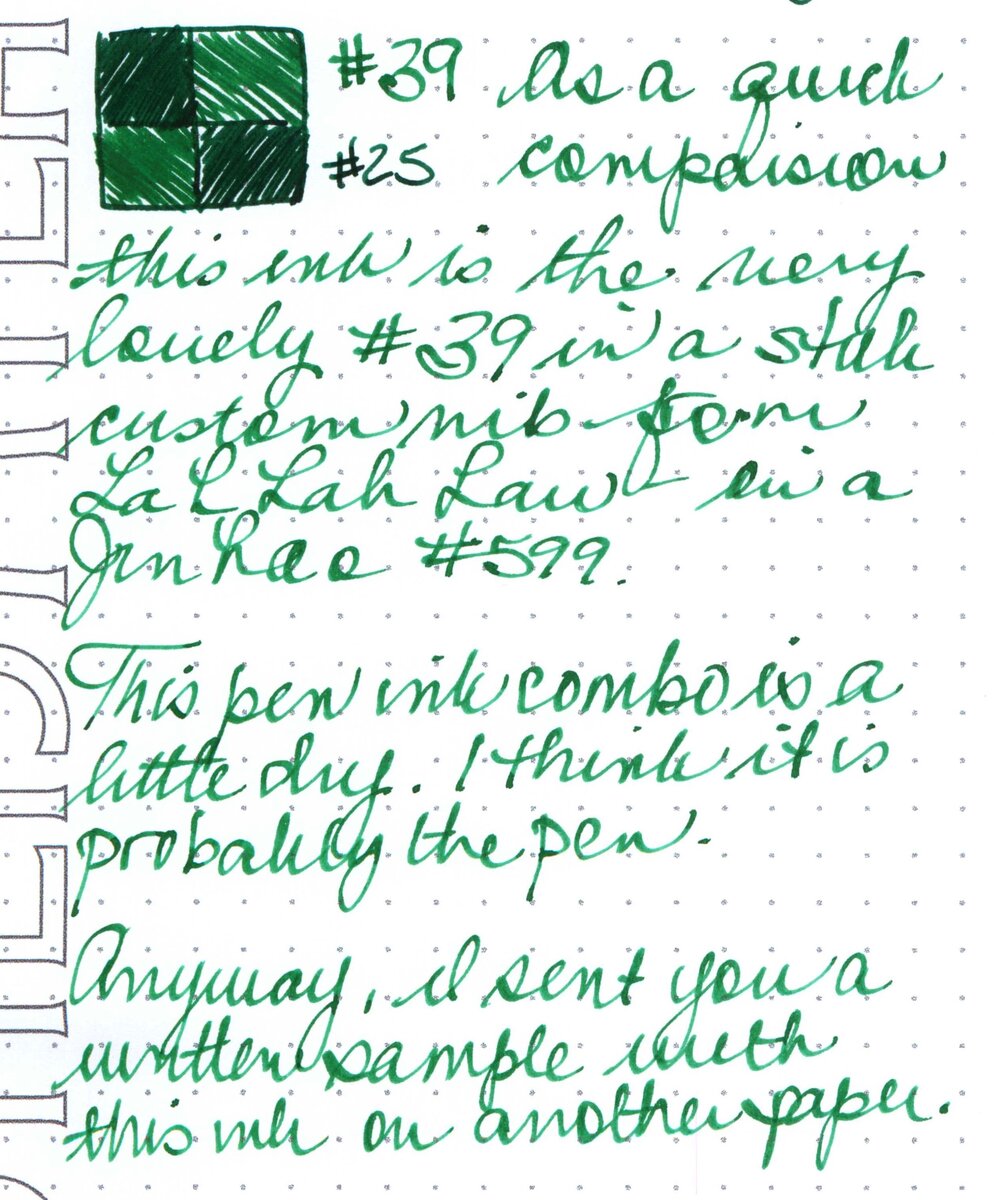 #39 As a quick
#25 compaision
this ink is the very
lovely #39 in a stub
custom nib from
La L Lah Law in a
Jinhao #599.
This pen ink combo is a
little dry. I think it is
probably the pen.
Anyway, I sent you a
written sample with
this ink on another paper.